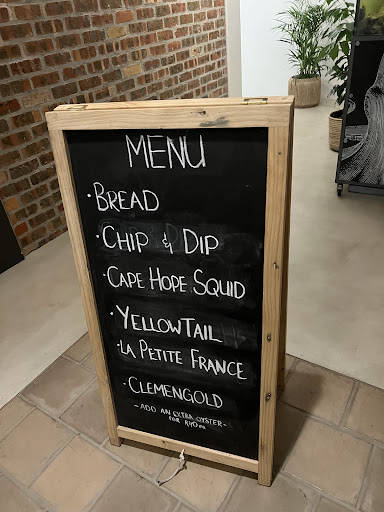 MENU
• BREAD
• CHIP & DIP
• CAPE HOPE SQUID
• YELLOWTAIL
• LA PETITE FRANCE
• CLEMENGOLD
- ADD AN EXTRA OYSTER -
FOR R40